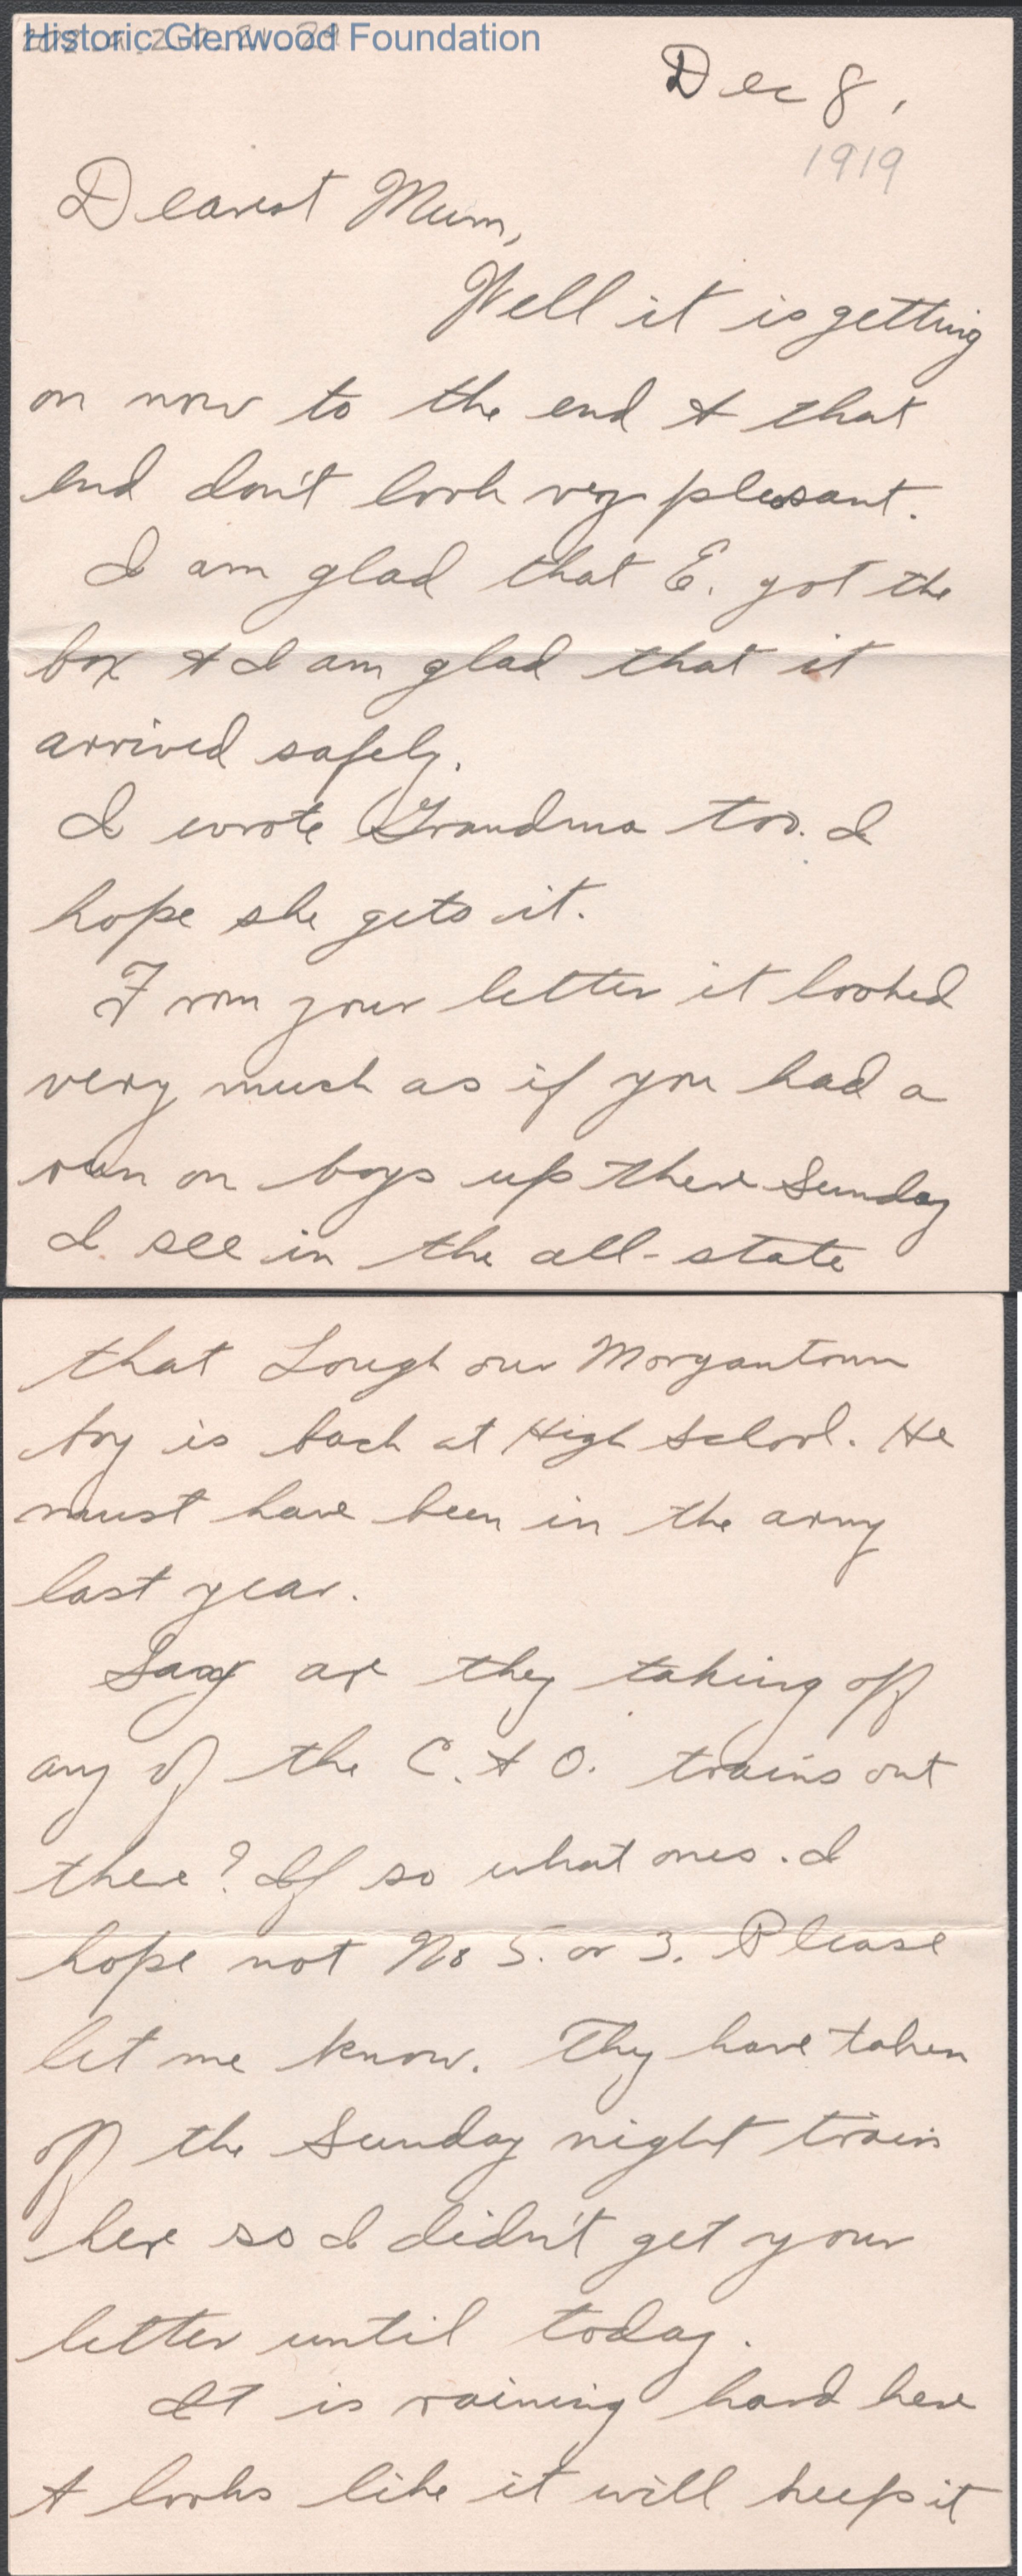 Historic Glenwood Foundation
Dec 8,
1919
Dearest Mum,
Well it is getting
on now to the end & that
end don't look very pleasant.
I am glad that E. got the
box & I am glad that it
arrived safely.
I wrote Grandma too. I
hope she gets it.
From your letter it looked
very much as if you had a
run on boys up there Sunday
I see in the all-state
that Lough our Morgantown
boy is back at High School. He
must have been in the army
last year.
Say are they taking off
any of the C. & O. trains out
there? If so what ones. I
hope not No 5. or 3. Please
let me know. They have taken
off the Sunday night train
here so I didn't get your
letter until today.
It is raining hard here
& looks like it will keep it